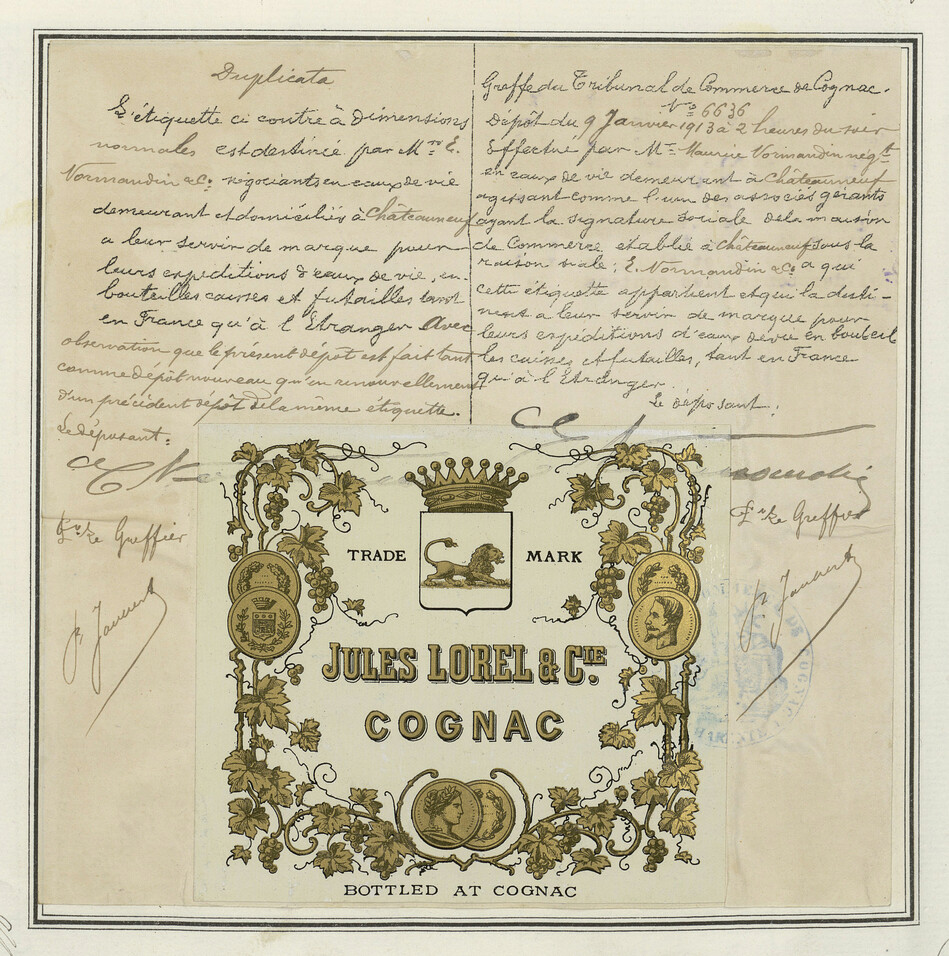 Duplicata
L'étiquette ci contre à dimensions
normales est destinée par Mrs E.
Normandin & Co négociants en eaux de vie
demeurant et domiciliés à Châteauneuf
a leur servir de marque pour
leurs expéditions d'eaux de vie, en
bouteilles caisses et futailles tant
en France qu'à l'Etranger Avec
observation que le présent dépôt est fait tant
comme dépôt nouveau qu'en renouvellement
d'un précédent dépôt de la même étiquette.
Le déposant:
Le Greffier
Greffe du Tribunal de Commerce de Cognac.
No 6636
Dépôt du 9 Janvier 1913 à 2 heures du soir
Effectué par Mr Maurice Normandin négt
en eaux de vie demeurant à Châteauneuf
agissant comme l'un des associés gérants
ayant la signature sociale de la maison
de Commerce établie à Châteauneuf sous la
raison siale: E. Normandin & Co a qui
cette étiquette appartient et qui la desti-
nent a leur servir de marque pour
leurs expéditions d'eaux de vie en bouteil
les caisses et futailles, tant en France
qu'à l'Etranger.
Le déposant:
Le Greffier
TRADE MARK
JULES LOREL & CIE.
COGNAC
BOTTLED AT COGNAC